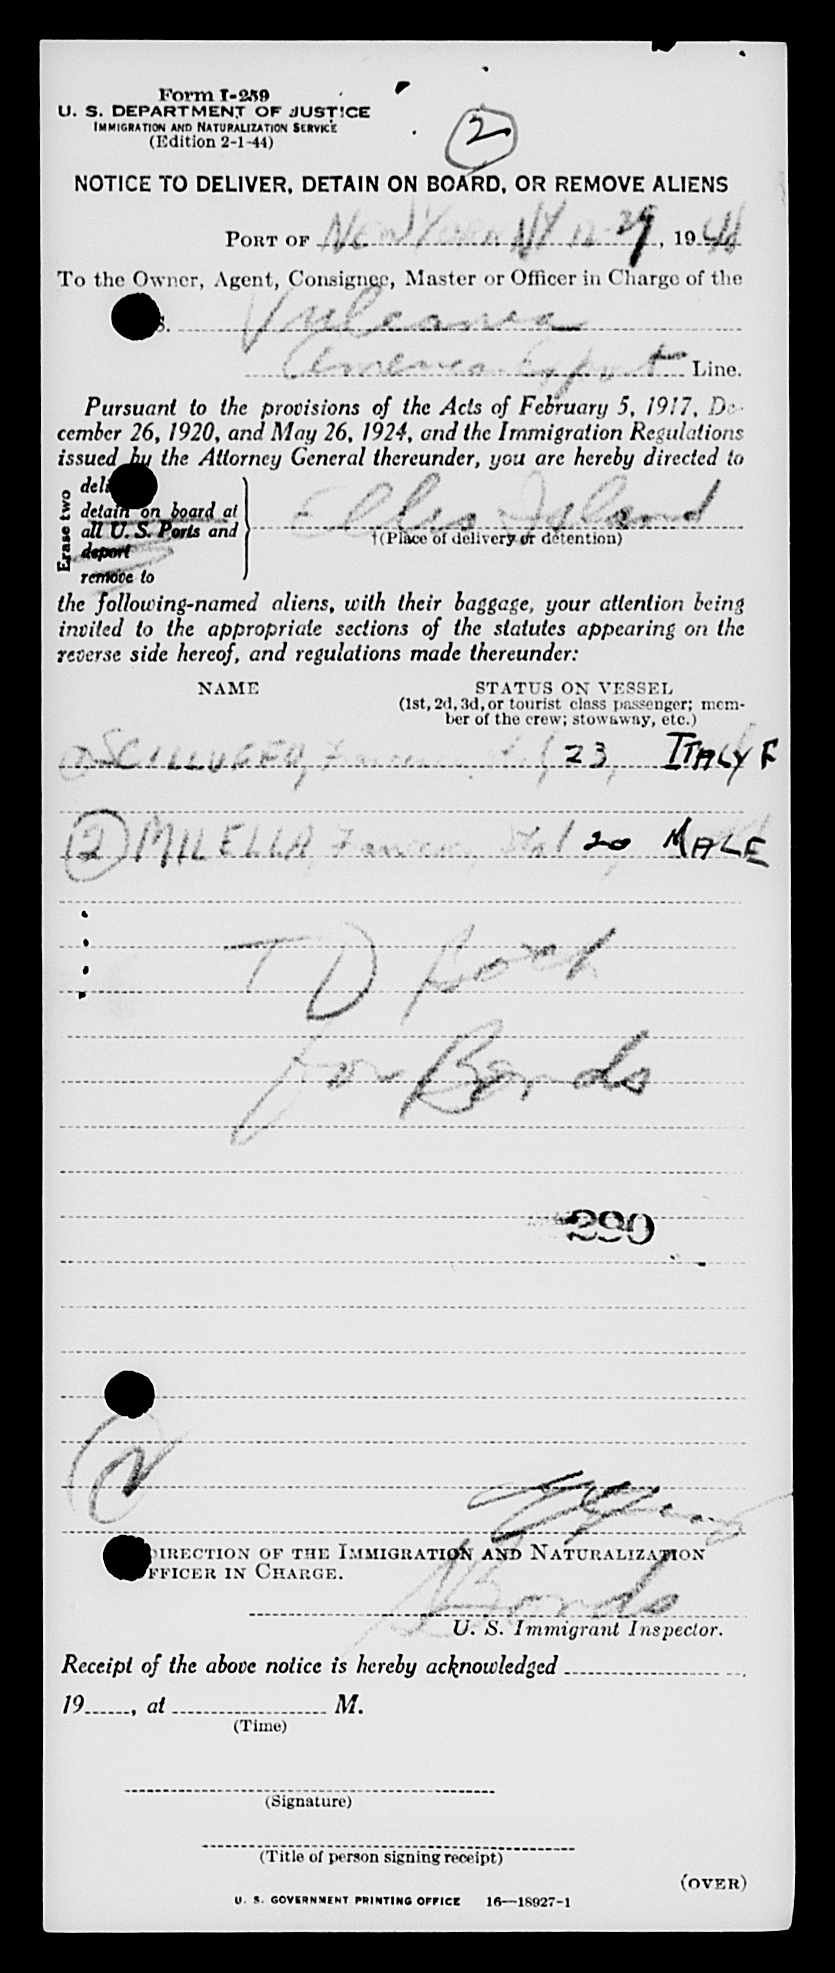 Form I-259
U. S. DEPARTMENT OF JUSTICE
IMMIGRATION AND NATURALIZATION SERVICE
(Edition 2-1-44)
2
NOTICE TO DELIVER, DETAIN ON BOARD, OR REMOVE ALIENS
PORT OF New York NY 12-29, 194
To the Owner, Agent, Consignee, Master or Officer in Charge of the
S. Vulcania
American Export Line.
Pursuant to the provisions of the Acts of February 5, 1917, De-
cember 26, 1920, and May 26, 1924, and the Immigration Regulations
issued by the Attorney General thereunder, you are hereby directed to
Erase two
deli
detain on board at
all U. S. Ports and
deport
remove to
Ellis Island
†(Place of delivery or detention)
the following-named aliens, with their baggage, your attention being
invited to the appropriate sections of the statutes appearing on the
reverse side hereof, and regulations made thereunder:
NAME STATUS ON VESSEL
(1st, 2d, 3d, or tourist class passenger; mem-
ber of the crew; stowaway, etc.)
23, ITALY F
2 MILELLA, Ital 20 MALE
TD
for Bonds
290
2
DIRECTION OF THE IMMIGRATION AND NATURALIZATION
OFFICER IN CHARGE.
Bonds
U. S. Immigrant Inspector.
Receipt of the above notice is hereby acknowledged
19, at M.
(Time)
(Signature)
(Title of person signing receipt)
(OVER)
U. S. GOVERNMENT PRINTING OFFICE 16—18927-1